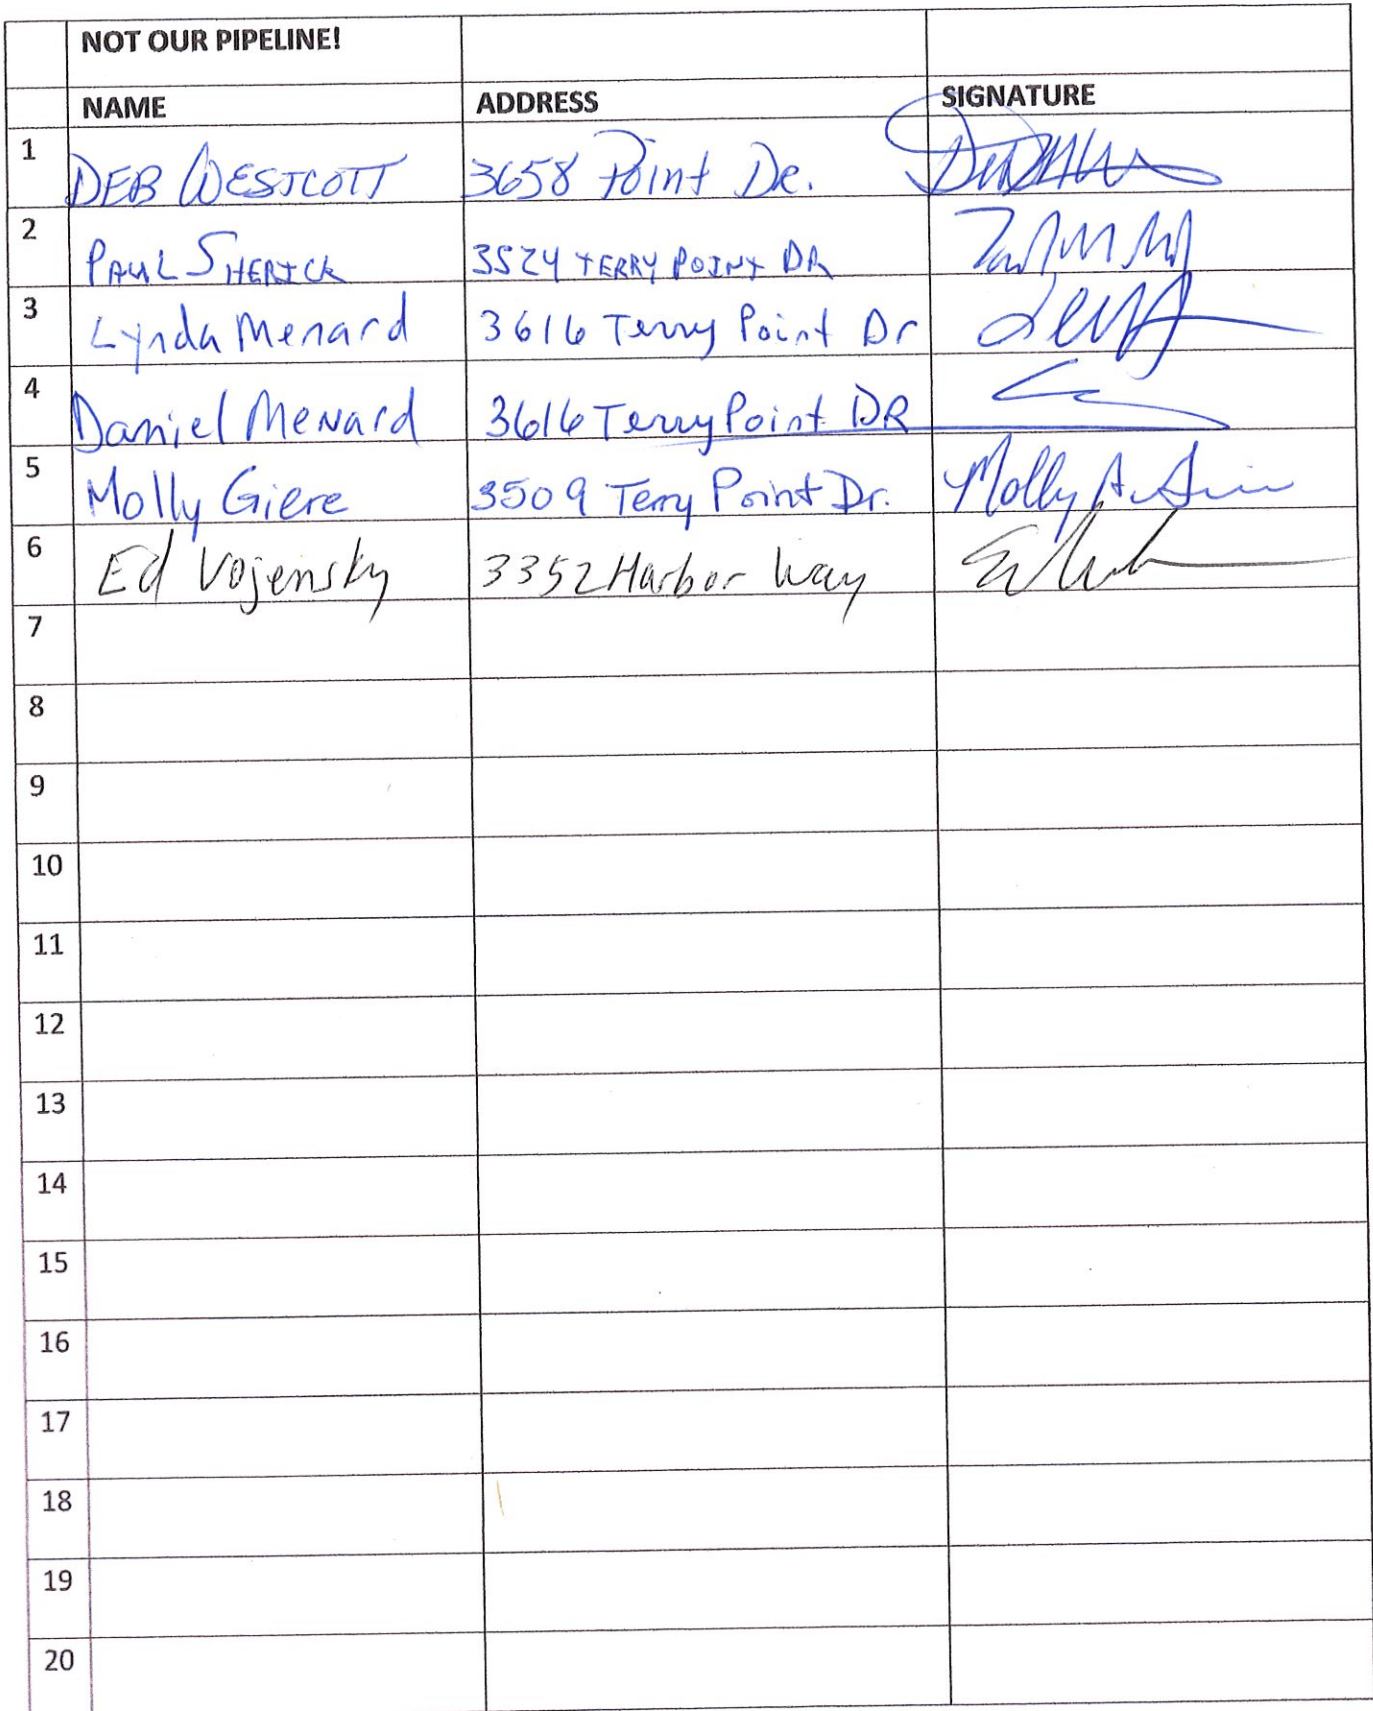 NOT OUR PIPELINE!
NAME ADDRESS SIGNATURE
1 DEB WESTCOTT 3658 Point De.
2 PAUL SHERICK 3524 TERRY POINT DR
3 Lynda Menard 3616 Terry Point Dr
4 Daniel Menard 3616 Terry Point DR
5 Molly Giere 3509 Terry Point Dr. Molly A.
6 Ed Vojensky 3352 Harbor Way
7
8
9
10
11
12
13
14
15
16
17
18
19
20